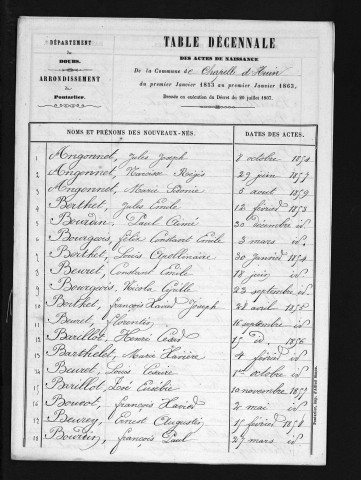 DÉPARTEMENT
du
DOUBS.
ARRONDISSEMENT
de
Pontarlier.
TABLE DÉCENNALE
DES ACTES DE NAISSANCE
De la Commune de Chapelle d'Huin
du premier Janvier 1853 au premier Janvier 1863,
Dressée en exécution du Décret du 20 juillet 1807.
NOMS ET PRÉNOMS DES NOUVEAUX-NÉS. DATES DES ACTES.
1 Angonnet, Jules Joseph 8 octobre 1854
2 Angonnet, Narcisse Régis 29 juin 1857
3 Angonnet, Marie 5 aout 1859
4 Berthet, Jules Emile 12 février 1853
5 Bourdin, Paul Aimé 30 décembre id
6 Bourgeois, Félix Constant Emile 3 mars id
7 Berthet, Louis Apollinaire 30 janvier 1854
8 Beuret, Constant Emile 18 juin id
9 Bourgeois, Nicolas Cyrille 23 septembre id
10 Berthet, françois Xavier Joseph 28 avril 1855
11 Beuret, florentin 16 septembre id
12 Barillot, Henri Cesar 17 id 1856
13 Barthelet, Marie 4 février id
14 Beuret, Louis 1er octobre id
15 Barillot, 10 novembre 1857
16 françois Xavier 2 mai id
17 Ernest Augustin 15 février 1858
18 Bourdin, françois Paul 27 mars id